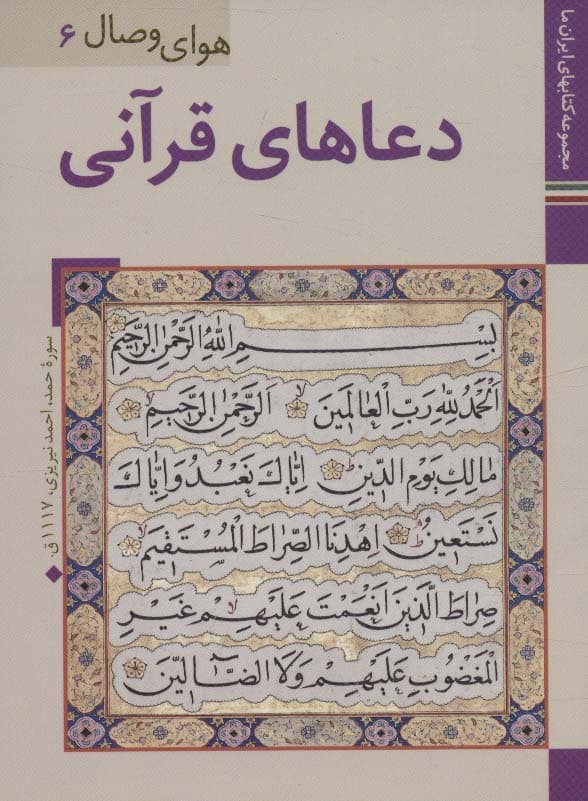 مجموعه کتابهای ایران ما
هوای وصال ۶
دعاهای قرآنی
بِسْمِ اللّٰهِ الرَّحْمٰنِ الرَّحِیْمِ
اَلْحَمْدُ لِلّٰهِ رَبِّ الْعَالَمِیْنَ اَلرَّحْمٰنِ الرَّحِیْمِ
مَالِكِ یَوْمِ الدِّیْنِ اِیَّاكَ نَعْبُدُ وَاِیَّاكَ
نَسْتَعِیْنُ اِهْدِنَا الصِّرَاطَ الْمُسْتَقِیْمَ
صِرَاطَ الَّذِیْنَ اَنْعَمْتَ عَلَیْهِمْ غَیْرِ
الْمَغْضُوْبِ عَلَیْهِمْ وَلَا الضَّآلِّیْنَ
سورهٔ حمد، احمد نیریزی، ۱۱۱۷ ق.